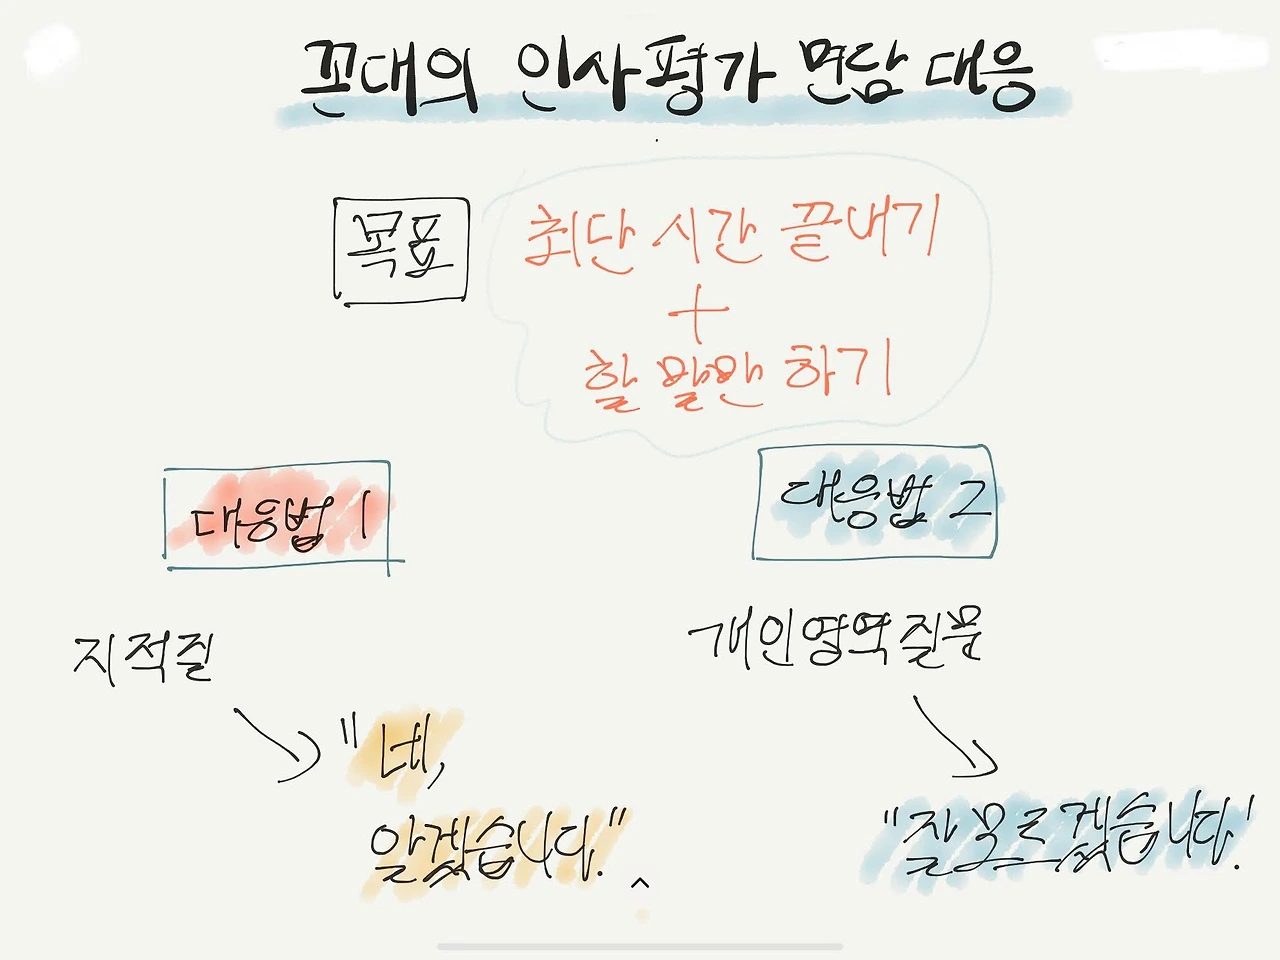 꼰대의 인사평가 면담 대응
목표
최단 시간 끝내기
+
할 말만 하기
대응법 1
대응법 2
지적질
개인영역 질문
"네,
알겠습니다."
"잘 모르겠습니다.'